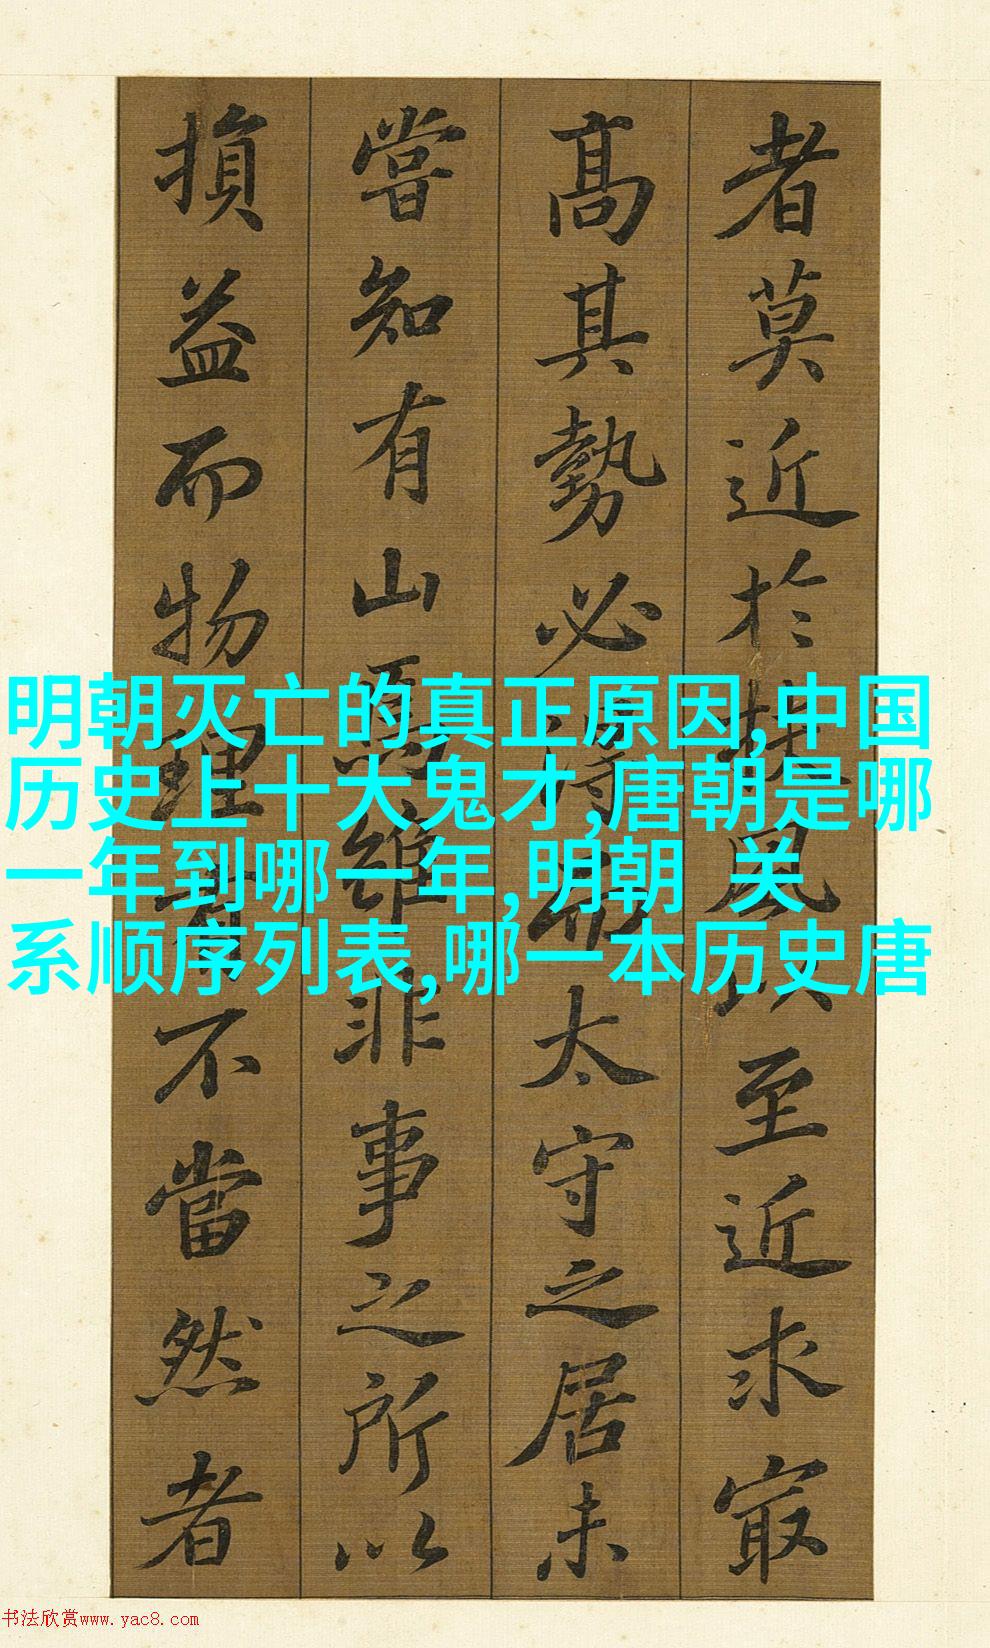 者莫近於扶風以至近求冣
高其勢必得而太守之居未
嘗知有山焉雖非事之所以
損益而物理有不當然者
明朝灭亡的真正原因,中国
历史上十大鬼才,唐朝是哪
一年到哪一年,明朝 关
系顺序列表,哪一本历史唐
书法欣赏www.yac8.com